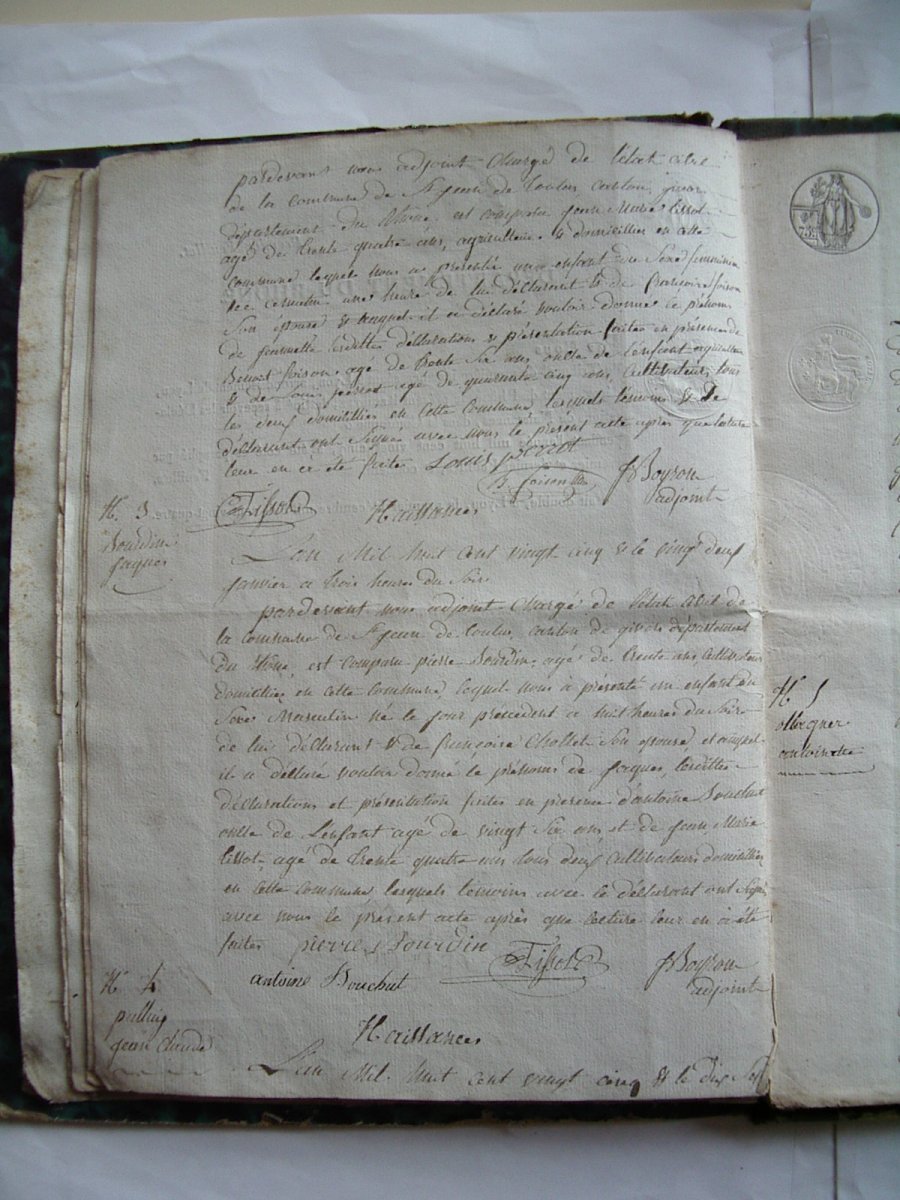 pardevant nous adjoint Chargé de l'état civil
de la commune de St jean de Toulas canton givors
département du Rhône est comparu jean Marie tissot
agé de trente quatre ans, agriculteur & domicilier en cette
commune lequel nous a présenté un enfant du Sexe feminine
née à une heure de lui déclarant & de françoise foison
Son epouse & auquel il a déclaré vouloir donner le prénoms
de lesdittes déclarations & présentation faites en présence de
Benoit foison agé de trente Six ans, oncle de l'enfant agriculteur
& de Louis agé de quarante cinq ans, Cultivateur, tous
les deux domiciliés en cette Commune, lesquels temoins & le
déclarant ont Signé avec nous le présent acte après que lecture
leur en a été faite Louis
B. foison JBoyron
adjoint
N. 3 Tissot Naissances
Bourdin
jaques
L'an Mil huit cent vingt cinq & le vingt deux
janvier a trois heures du Soir
pardevant nous adjoint Chargé de l'état civil de
la commune de St jean de toulas, canton de givors département
du Rhône est comparu pierre Bourdin agé de trente ans Cultivateur
domicilié en cette Commune, lequel nous à présenté un enfant du
Sexe Masculin né le jour precedent a huit heures du Soir
de lui déclarant & de françoise Chollet Son epouse et auquel
il a déclaré vouloir donné le prénoms de jaques, lesdittes
déclarations et présentation faites en presence d'antoine Bouchut
oncle de L'enfant agé de vingt Six ans et de jean Marie
tissot agé de trente quatre ans tous deux Cultivateurs domiciliés
en cette Commune lesquels temoins avec le déclarant ont Signé
avec nous le présent acte après que lecture leur en à été
faites pierre Bourdin Tissot JBoyron
antoine Bouchut adjoint
N. 4
jean Claude
Naissances
L'an Mil huit cent vingt cinq & le dix Sept
N. 5
antoinette
75c